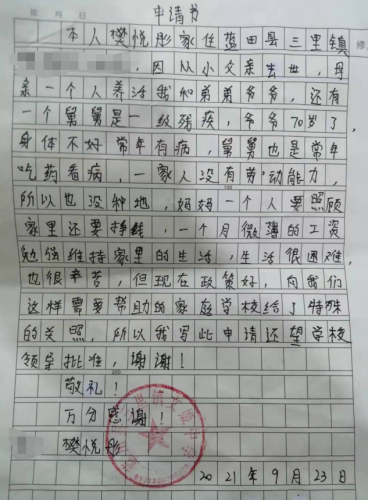 年 月 日
申请书
本人樊悦彤家住蓝田县三里镇
，因从小父亲去世，母
亲一个人养活我和弟弟爷爷，还有
一个舅舅是一级残疾，爷爷70岁了，
身体不好常年有病，舅舅也是常年
吃药看病，一家人没有劳动能力，
所以也没种地，妈妈一个人要照顾
家里还要挣钱，一个月微薄的工资
勉强维持家里的生活，生活很困难
也很辛苦，但现在政策好，向我们
这样需要帮助的家庭学校给了特殊
的关照，所以我写此申请还望学校
领导批准，谢谢！
敬礼！
万分感谢！
樊悦彤
2021年9月23日